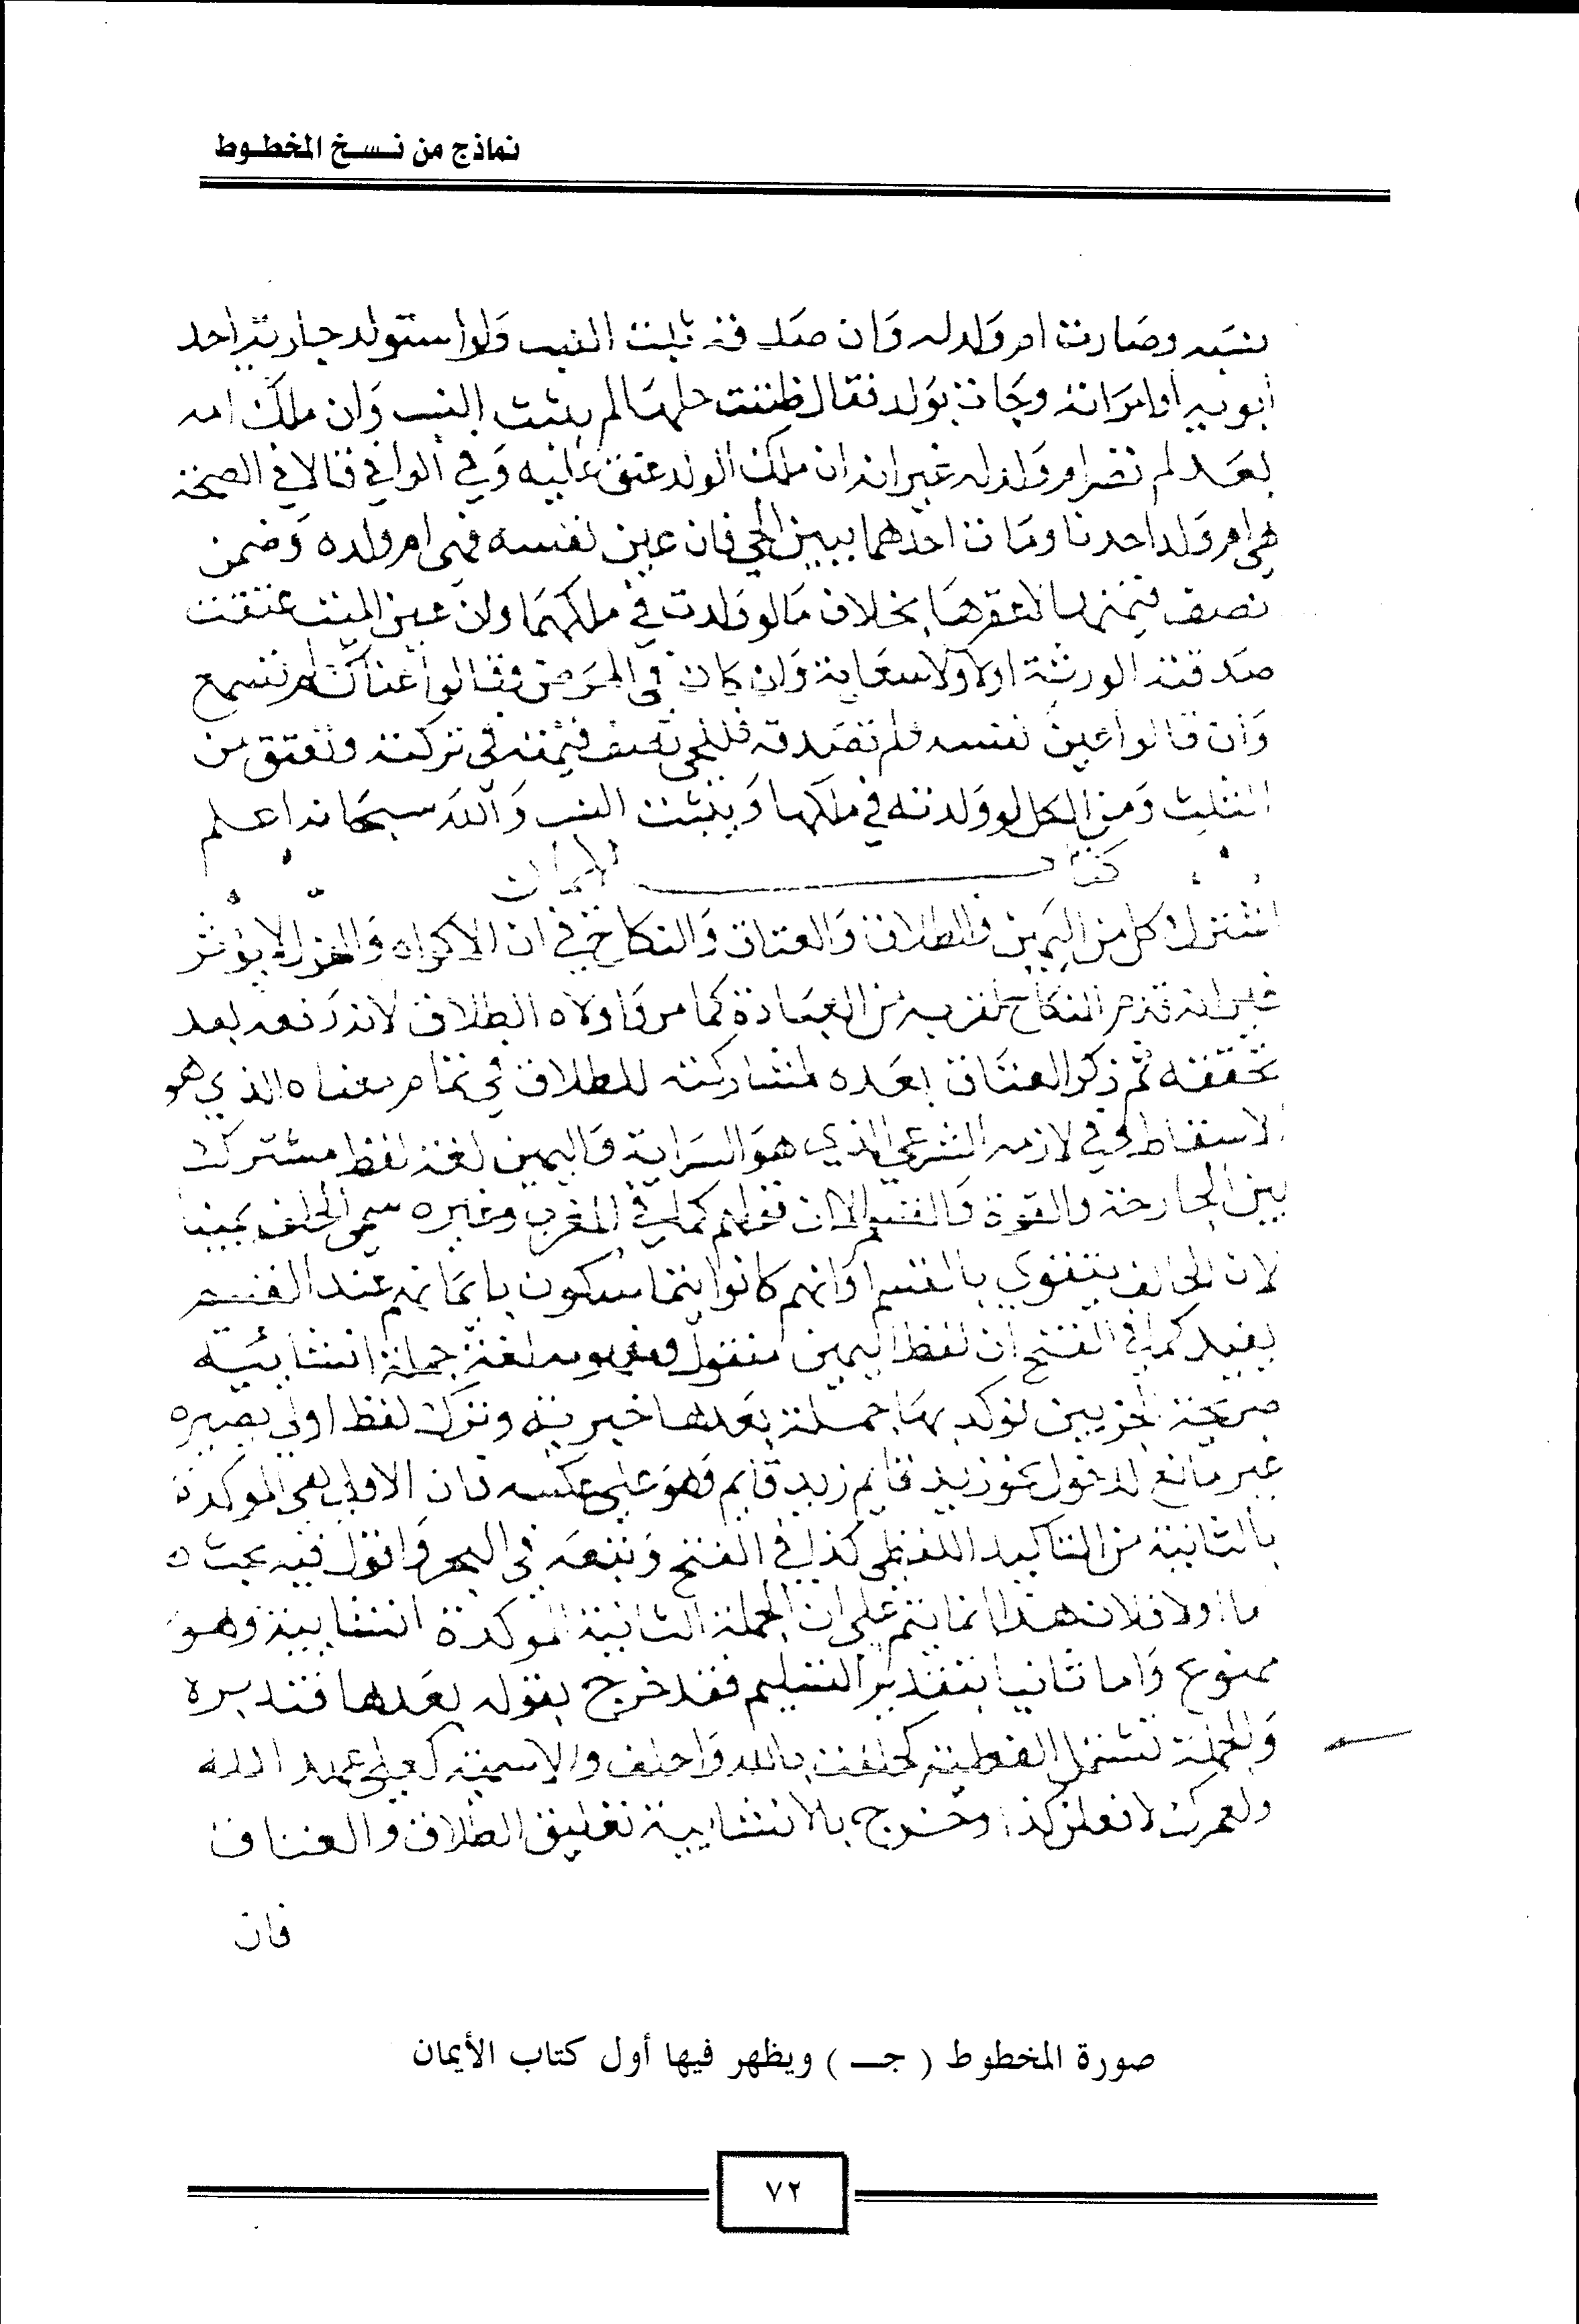 نماذج من نسخ المخطوط
نسبه وصارت ام ولد له وَان صَدقته ثبت النسب وَلو استولد جارية احد
أبويه أو امرَاته وجَات بوَلد فقال ظننت حلهَا لم يثبت النسب وَان ملكَ امه
بعَد لم تصر ام وَلد له غير انه ان ملك الولد عتق عليه وَفي الوافي قالا في الصحة
هي ام وَلد احدنا ومَات احدهما يبين الحي فان عين نفسه فهي ام ولده وَضمن
نصف قيمتها لا عقرهَا بخلاف مَا لو وَلدت في ملكهمَا وان عين الميت عتقت
صَدقته الورثة اولا وَلا سعَاية وَان كان في المرَض وقالوا عناك لم تسمع
وَان قالوا عين نفسه فلم تصَدقه فللحي نصف قيمته في تركته وتعتق من
الثلث وَمن الكل لو وَلدته في ملكهما وَيثبت النسب وَالله سبحَانه اعلم
كتاب الايمان
اشترك كل من اليمين وَالطلاق وَالعتاق وَالنكاح في ان الاكراه وَالهزل لا يؤثر
غير انه قدم النكاح لقربه من العبَادة كما مر وَاولاه الطلاق لانه رَفعه بعد
تحققه ثم ذكر العتَاق بعَده لمشاركته للطلاق في تمام معناه الذي هو
الاسقاط وَفي لازمه الشرعي الذي هوَ السرَاية وَاليمين لغة لفظ مشترك
بين الجارحة والقوة وَالقسم الا ان قولهم كما في المغرب وغيره سمي الحلف يمينا
لان الحالف يتقوى بالقسم اوَ انهم كانوا يتماسكون بايمَانهم عند القسم
يفيد كما في الفتح ان لفظ اليمين منقول ومفهومه لغة جملة انشائية
صريحة الجزيين تؤكد بهَا جملة بعَدها خبرية وترك لفظ اولى يصيره
غير مانع لدخول نحو زيد قايم زيد قايم وَهوَ على عكسه فان الاولى هي الموكدة
بالثانية من التاكيد اللفظي كذا في الفتح وَتبعَه في البحر وَاقول فيه بحث
اما اولا فلان هذا انما يتم على ان الجملة الثانية الموكدة انشايية وهوَ
ممنوع وَاما ثانيا بتقدير التسليم فقد خرج بقوله بعَدها فتدبره
وَالجملة تشتمل الفعلية كحلفت بالله وَاحلف والاسمية كعلي عهد الله
ولعمرك لافعلن كذا وَخرج بالانشايية تعليق الطلاق والعتاق
فان
صورة المخطوط ( جـ ) ويظهر فيها أول كتاب الأيمان
٧٢